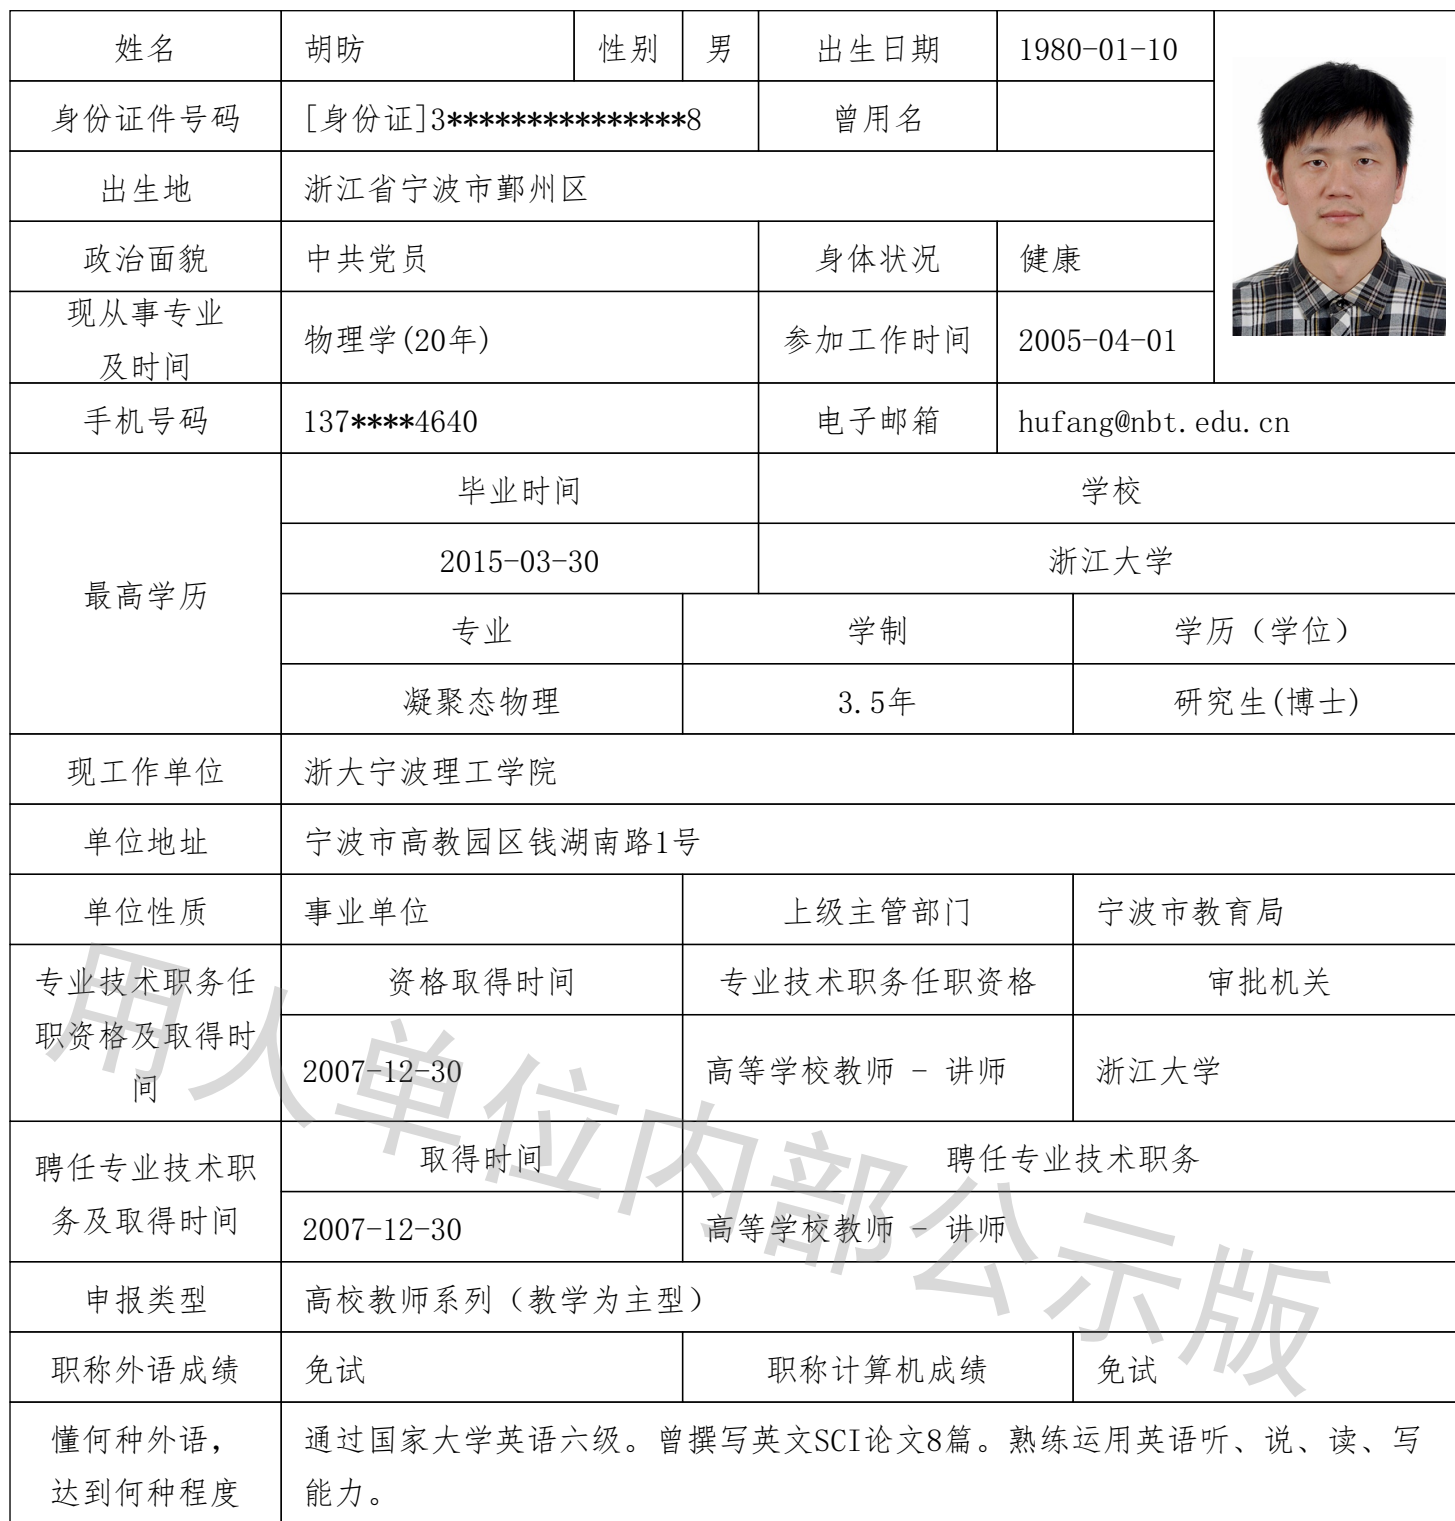 姓名 胡昉 性别 男 出生日期 1980-01-10
身份证件号码 [身份证]3***************8 曾用名
出生地 浙江省宁波市鄞州区
政治面貌 中共党员 身体状况 健康
现从事专业
及时间
物理学(20年) 参加工作时间 2005-04-01
手机号码 137****4640 电子邮箱 hufang@nbt.edu.cn
最高学历
毕业时间 学校
2015-03-30 浙江大学
专业 学制 学历（学位）
凝聚态物理 3.5年 研究生(博士)
现工作单位 浙大宁波理工学院
单位地址 宁波市高教园区钱湖南路1号
单位性质 事业单位 上级主管部门 宁波市教育局
专业技术职务任
职资格及取得时
间
资格取得时间 专业技术职务任职资格 审批机关
2007-12-30 高等学校教师 - 讲师 浙江大学
聘任专业技术职
务及取得时间
取得时间 聘任专业技术职务
2007-12-30 高等学校教师 - 讲师
申报类型 高校教师系列（教学为主型）
职称外语成绩 免试 职称计算机成绩 免试
懂何种外语，
达到何种程度
通过国家大学英语六级。曾撰写英文SCI论文8篇。熟练运用英语听、说、读、写
能力。
用人单位内部公示版